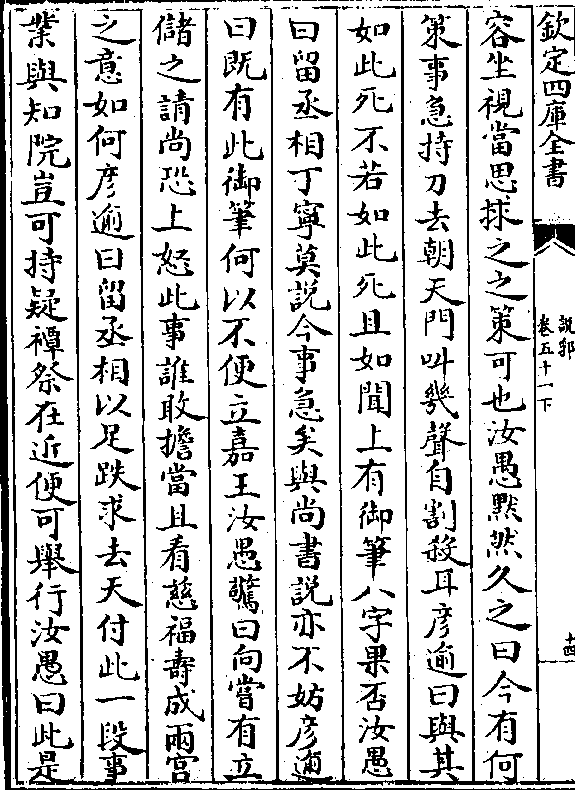 欽定四庫全書
說郛
卷五十一下
十四
容坐視當思捄之之策可也汝愚黙然久之曰今有何
策事急持刀去朝天門叫幾聲自割殺耳彦逾曰與其
如此死不若如此死且如聞上有御筆八字果否汝愚
曰留丞相丁寧莫說今事急矣與尚書說亦不妨彦逾
曰既有此御筆何以不便立嘉王汝愚驚曰向嘗有立
儲之請尚恐上怒此事誰敢擔當且看慈福壽成兩宫
之意如何彦逾曰留丞相以足跌求去天付此一段事
業與知院豈可持疑禫祭在近便可舉行汝愚曰此是